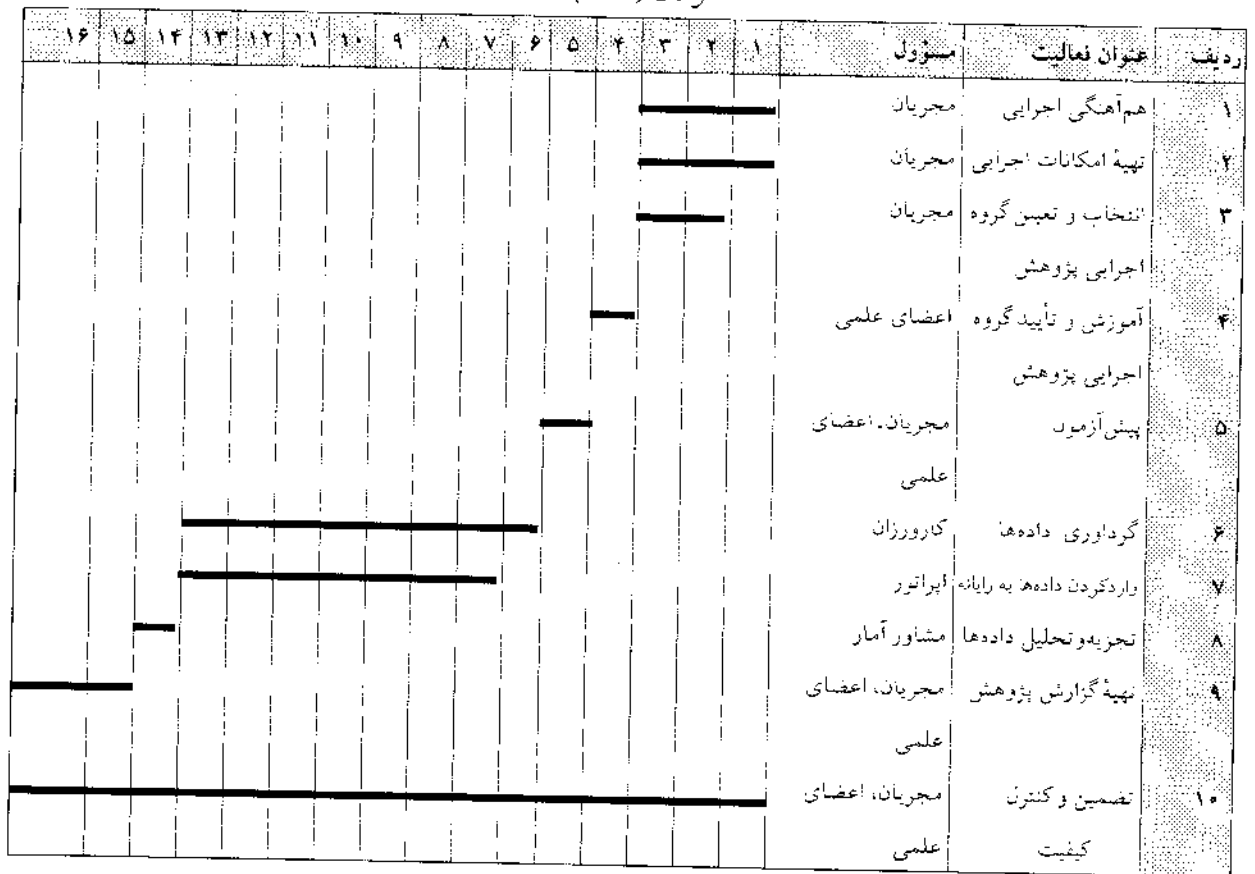 ردیف عنوان فعالیت مسؤول ۱ ۲ ۳ ۴ ۵ ۶ ۷ ۸ ۹ ۱۰ ۱۱ ۱۲ ۱۳ ۱۴ ۱۵ ۱۶
۱ هم‌آهنگی اجرایی مجریان
۲ تهیهٔ امکانات اجرایی مجریان
۳ انتخاب و تعیین گروه مجریان
اجرایی پژوهش
۴ آموزش و تأیید گروه اعضای علمی
اجرایی پژوهش
۵ پیش‌آزمون مجریان، اعضای
علمی
۶ گرداوری داده‌ها کارورزان
۷ واردکردن داده‌ها به رایانه اپراتور
۸ تجزیه‌وتحلیل داده‌ها مشاور آمار
۹ تهیهٔ گزارش پژوهش مجریان، اعضای
علمی
۱۰ تضمین و کنترل مجریان، اعضای
کیفیت علمی